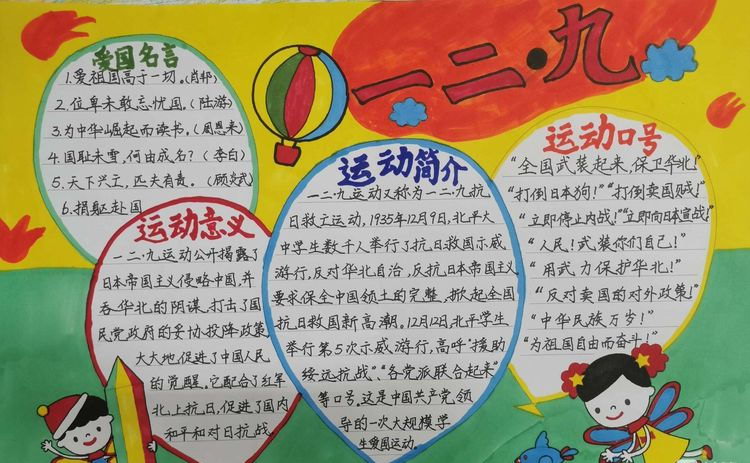 一二·九
爱国名言
1.爱祖国高于一切。(肖邦)
2.位卑未敢忘忧国。(陆游)
3.为中华崛起而读书。(周恩来)
4.国耻未雪,何由成名?(李白)
5.天下兴亡,匹夫有责。 顾炎武
6.捐躯赴国
运动意义
一二·九运动公开揭露了
日本帝国主义侵略中国,并
吞华北的阴谋,打击了国
民党政府的妥协投降政策
大大地促进了中国人民
的觉醒。它配合了红军
北上抗日,促进了国内
和平和对日抗战
运动简介
一二·九运动又称为一二·九抗
日救亡运动,1935年12月9日,北平大
中学生数千人举行了抗日救国示威
游行,反对华北自治,反抗日本帝国主义
要求保全中国领土的完整,掀起全国
抗日救国新高潮。12月12日,北平学生
举行第5次示威游行,高呼"援助
绥远抗战"、"各党派联合起来"
等口号。这是中国共产党领
导的一次大规模学
生爱国运动。
运动口号
"全国武装起来,保卫华北!"
"打倒日本狗!""打倒卖国贼!"
"立即停止内战!""立即向日本宣战!"
"人民!武装你们自己!"
"用武力保护华北!"
"反对卖国的对外政策!"
"中华民族万岁!"
"为祖国自由而奋斗!"